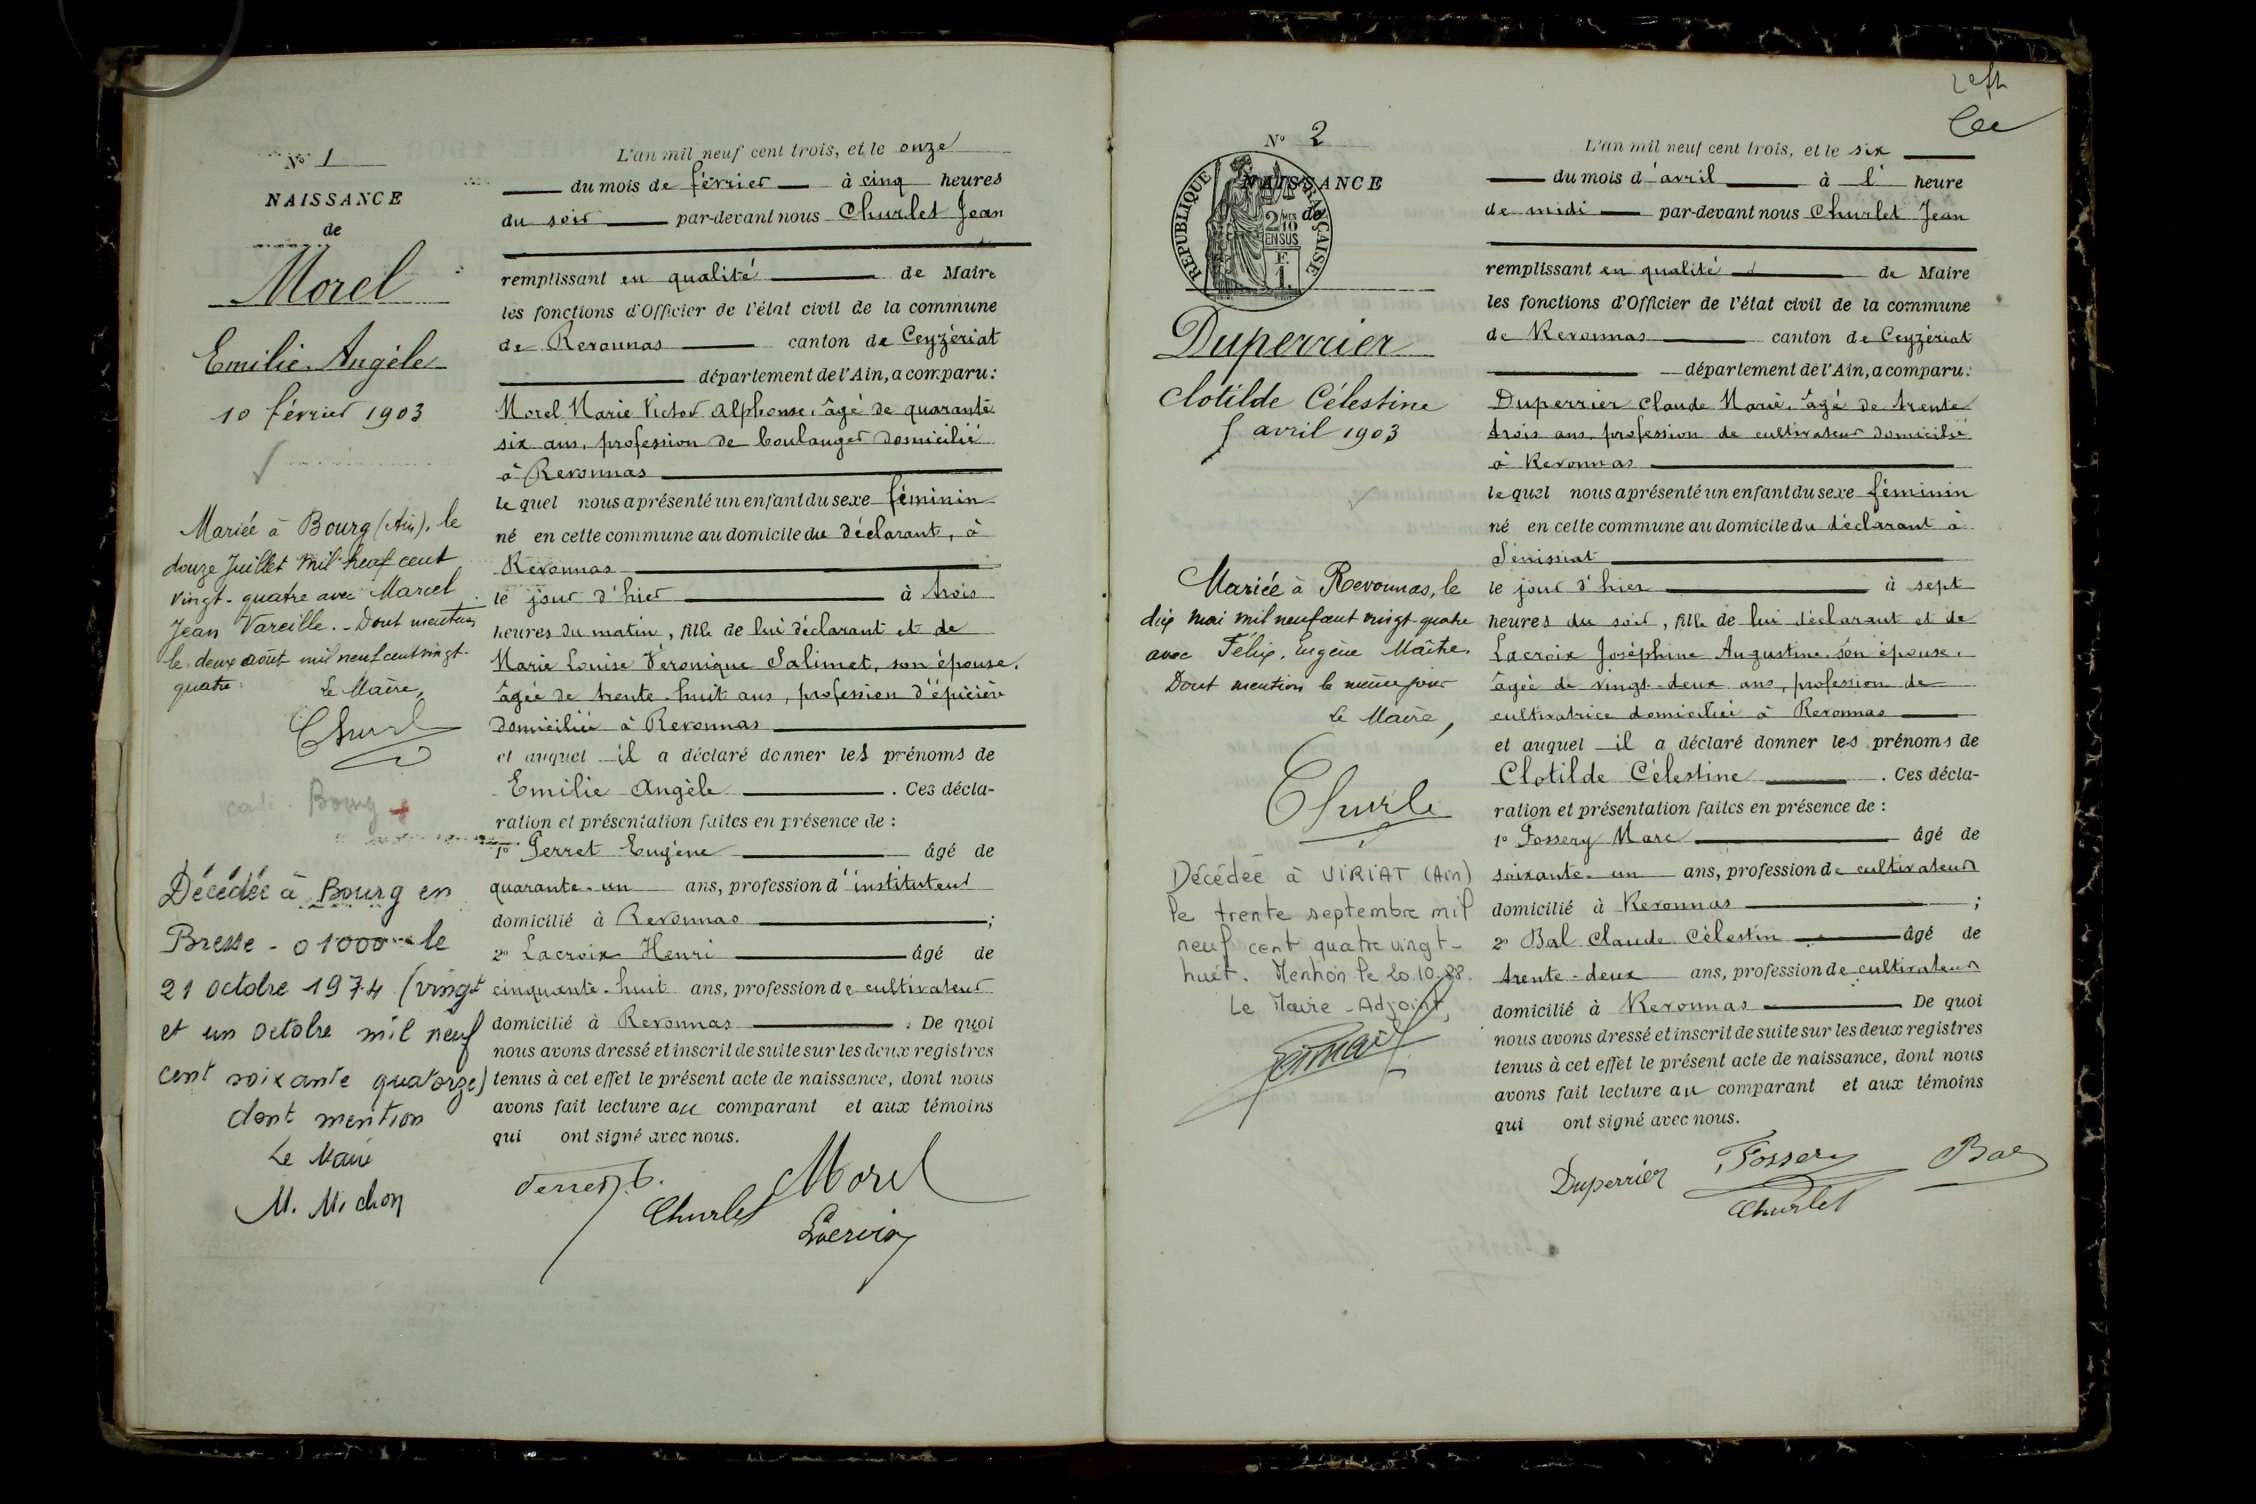 Nº 1
NAISSANCE
de
Morel
Emilie Angèle
10 février 1903
Mariée à Bourg (Ain), le
douze Juillet mil neuf cent
vingt-quatre avec Marcel
Jean Vareille. - Dont mention
le deux août mil neuf cent vingt-
quatre.
Le Maire,
Churl
Bourg
Décédée à Bourg en
Bresse - 01000 - le
21 octobre 1974 (vingt
et un octobre mil neuf
cent soixante quatorze)
dont mention
Le Maire
M. Michon
L'an mil neuf cent trois, et le onze
du mois de février à cinq heures
du soir par-devant nous Churlet Jean
remplissant en qualité de Maire
les fonctions d'Officier de l'état civil de la commune
de Revonnas canton de Ceyzériat
département de l'Ain, a comparu:
Morel Marie Victor Alphonse, âgé de quarante
six ans, profession de boulanger domicilié
à Revonnas
lequel nous a présenté un enfant du sexe féminin
né en cette commune au domicile du déclarant, à
Revonnas
le jour d'hier à trois
heures du matin, fille de lui déclarant et de
Marie Louise Véronique Salimet, son épouse,
âgée de trente-huit ans, profession d'épicière
domiciliée à Revonnas
et auquel il a déclaré donner les prénoms de
Emilie Angèle. Ces décla-
ration et présentation faites en présence de :
1º Perret Eugène âgé de
quarante-un ans, profession d'instituteur
domicilié à Revonnas ;
2º Lacroix Henri âgé de
cinquante-huit ans, profession de cultivateur
domicilié à Revonnas. De quoi
nous avons dressé et inscrit de suite sur les deux registres
tenus à cet effet le présent acte de naissance, dont nous
avons fait lecture au comparant et aux témoins
qui ont signé avec nous.
Morel
Churlet
Lacroix
Nº 2
NAISSANCE
de
RÉPUBLIQUE FRANÇAISE
2/10
EN SUS
F.
1.
Duperrier
Clotilde Célestine
5 avril 1903
Mariée à Revonnas, le
dix mai mil neuf cent vingt quatre
avec Félix, Eugène Maître.
Dont mention le même jour
Le Maire,
Churle
Décédée à VIRIAT (Ain)
le trente septembre mil
neuf cent quatre vingt-
huit. Mention le 20.10.88.
Le Maire-Adjoint,
L'an mil neuf cent trois, et le six
du mois d'avril à l' heure
de midi par-devant nous Churlet Jean
remplissant en qualité de Maire
les fonctions d'Officier de l'état civil de la commune
de Revonnas canton de Ceyzériat
département de l'Ain, a comparu:
Duperrier Claude Marie, âgé de trente
trois ans, profession de cultivateur domicilié
à Revonnas
lequel nous a présenté un enfant du sexe féminin
né en cette commune au domicile du déclarant à
Sénissiat
le jour d'hier à sept
heures du soir, fille de lui déclarant et de
Lacroix Joséphine Augustine, son épouse,
âgée de vingt-deux ans, profession de
cultivatrice domiciliée à Revonnas
et auquel il a déclaré donner les prénoms de
Clotilde Célestine. Ces décla-
ration et présentation faites en présence de :
1º Fossery Marc âgé de
soixante-un ans, profession de cultivateur
domicilié à Revonnas ;
2º Bal Claude Célestin âgé de
trente-deux ans, profession de cultivateur
domicilié à Revonnas De quoi
nous avons dressé et inscrit de suite sur les deux registres
tenus à cet effet le présent acte de naissance, dont nous
avons fait lecture au comparant et aux témoins
qui ont signé avec nous.
Duperrier Fossery Bal
Churlet